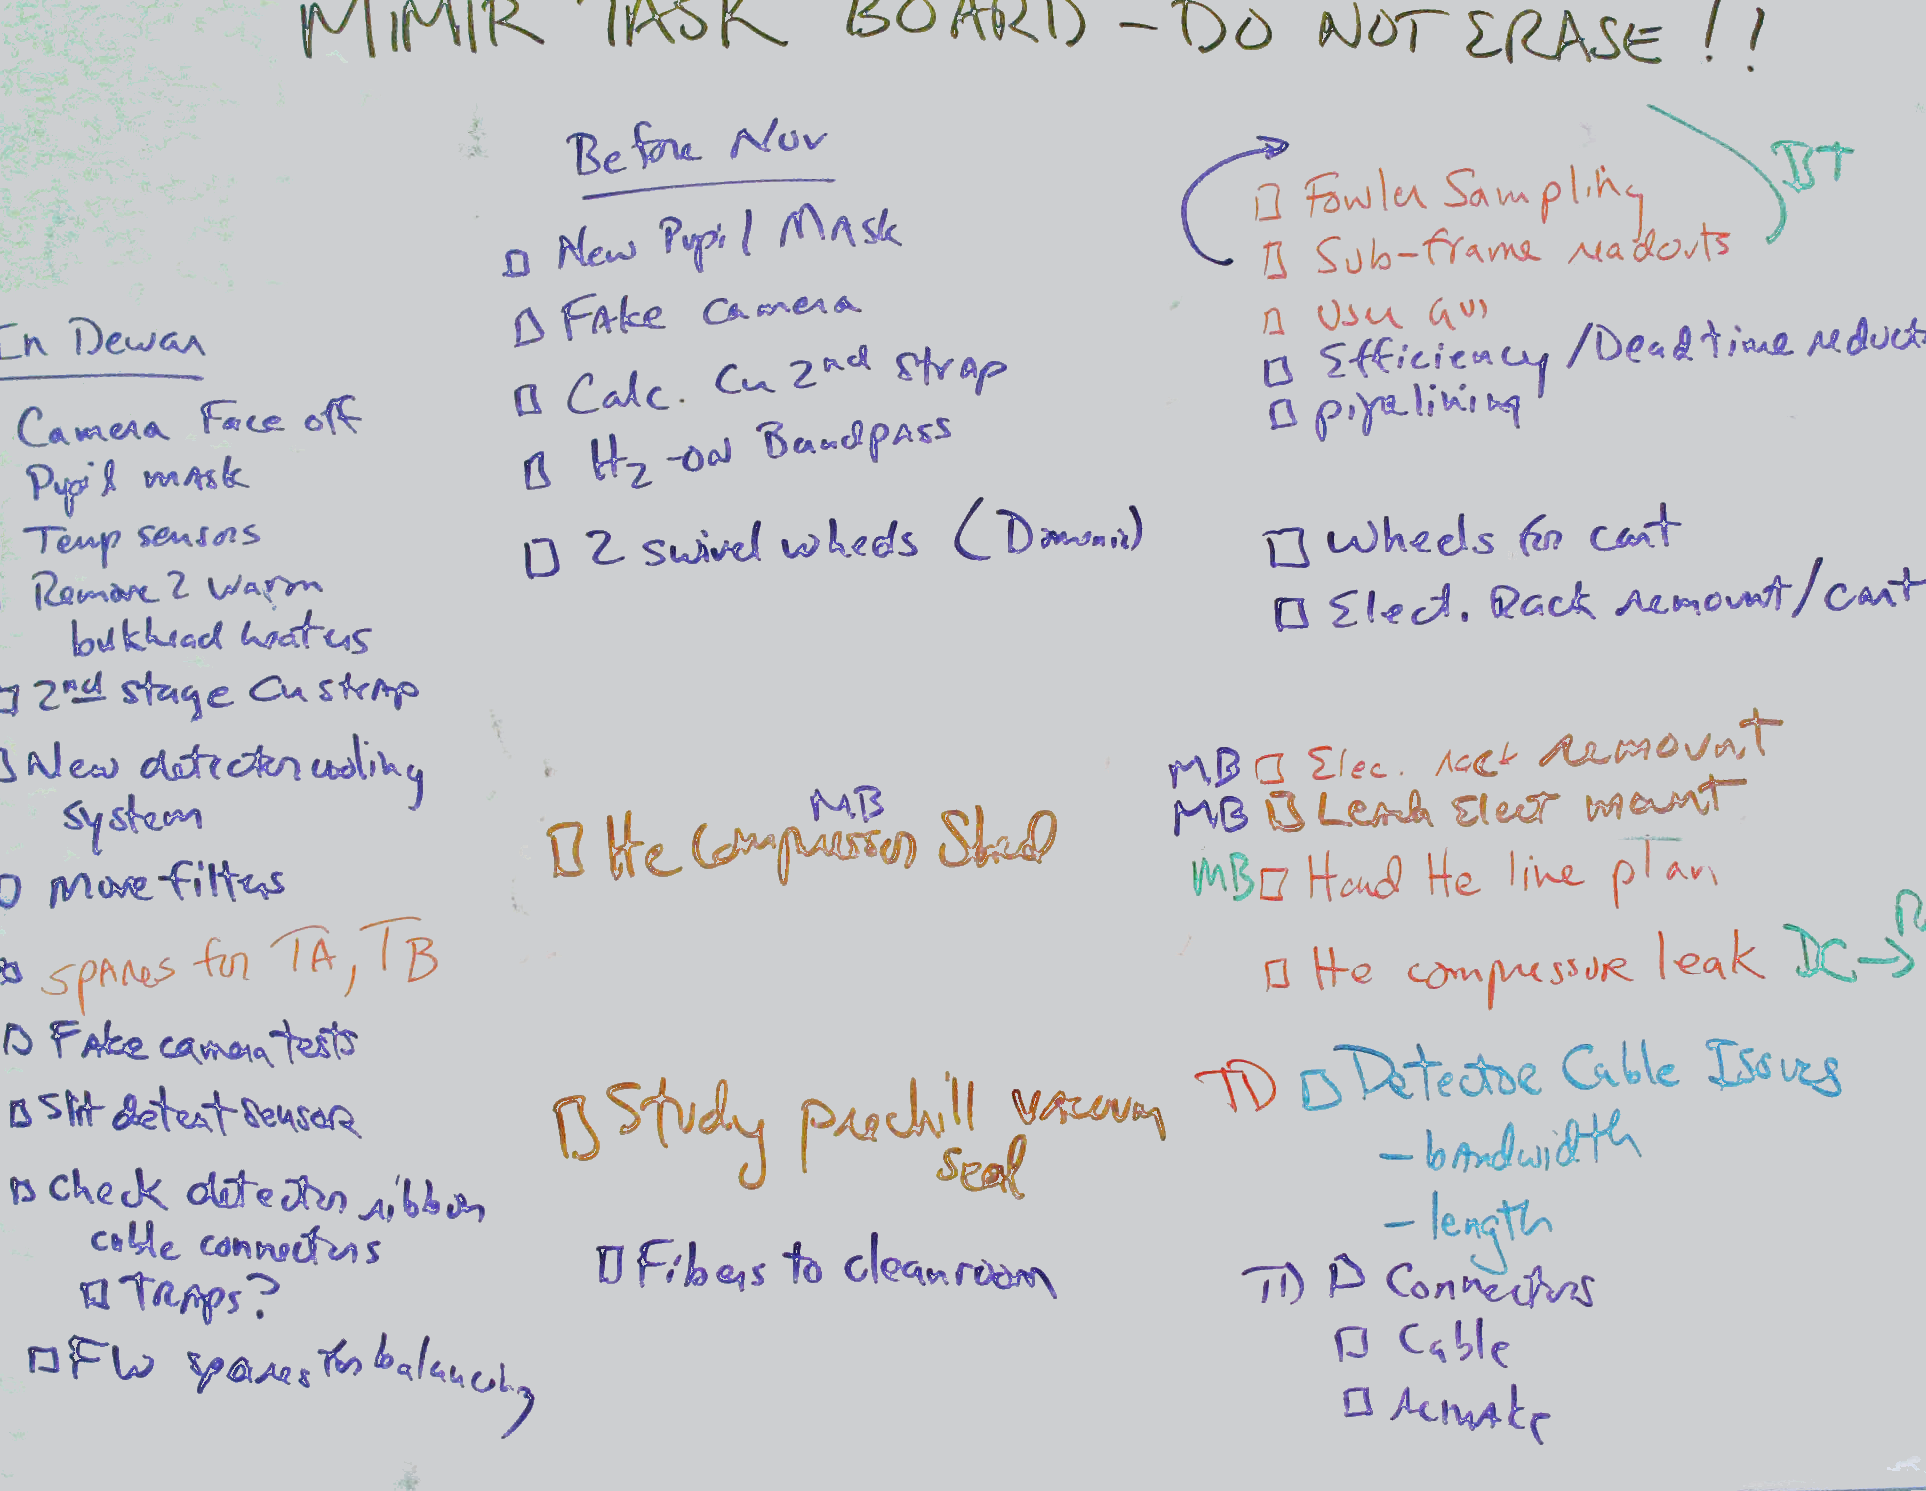 MIMIR TASK BOARD - DO NOT ERASE!!
In Dewar
Camera Face off
Pupil mask
Temp sensors
Remove 2 warm
bulkhead heaters
2nd stage Cu strap
New detector cooling
system
More filters
spares for TA, TB
Fake camera tests
Slit detent sensor
Check detector ribbon
cable connectors
TRAPS?
FW spares for balancing
Before Nov
New Pupil Mask
Fake camera
Calc. Cu 2nd strap
H2-on Bandpass
2 swivel wheels (Dominic)
MB
He Compressor Shed
Study prechill vacuum
seal
Fibers to cleanroom
BT
Fowler Sampling
Sub-frame readouts
User GUI
Efficiency/Deadtime reduct
pipelining
Wheels for cart
Elect. Rack remount/cart
MB Elec. rack remount
MB Leach Elect mount
MB Hand He line plan
He compressor leak DC→
TD Detector Cable Issues
- bandwidth
- length
TD Connectors
Cable
remake